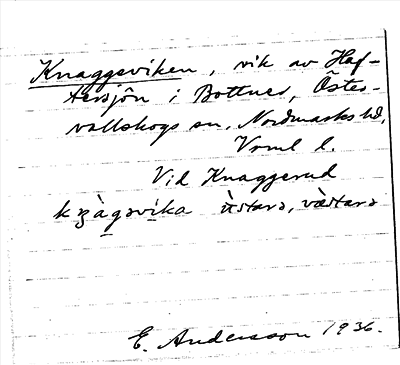 Knaggeviken, vik av Haf-
tersjön i Bottned, Östes-
vallskogs sn, Nordmarks hd,
Vrml l.
Vid Knaggerud
västarə
E. Andersson 1936.